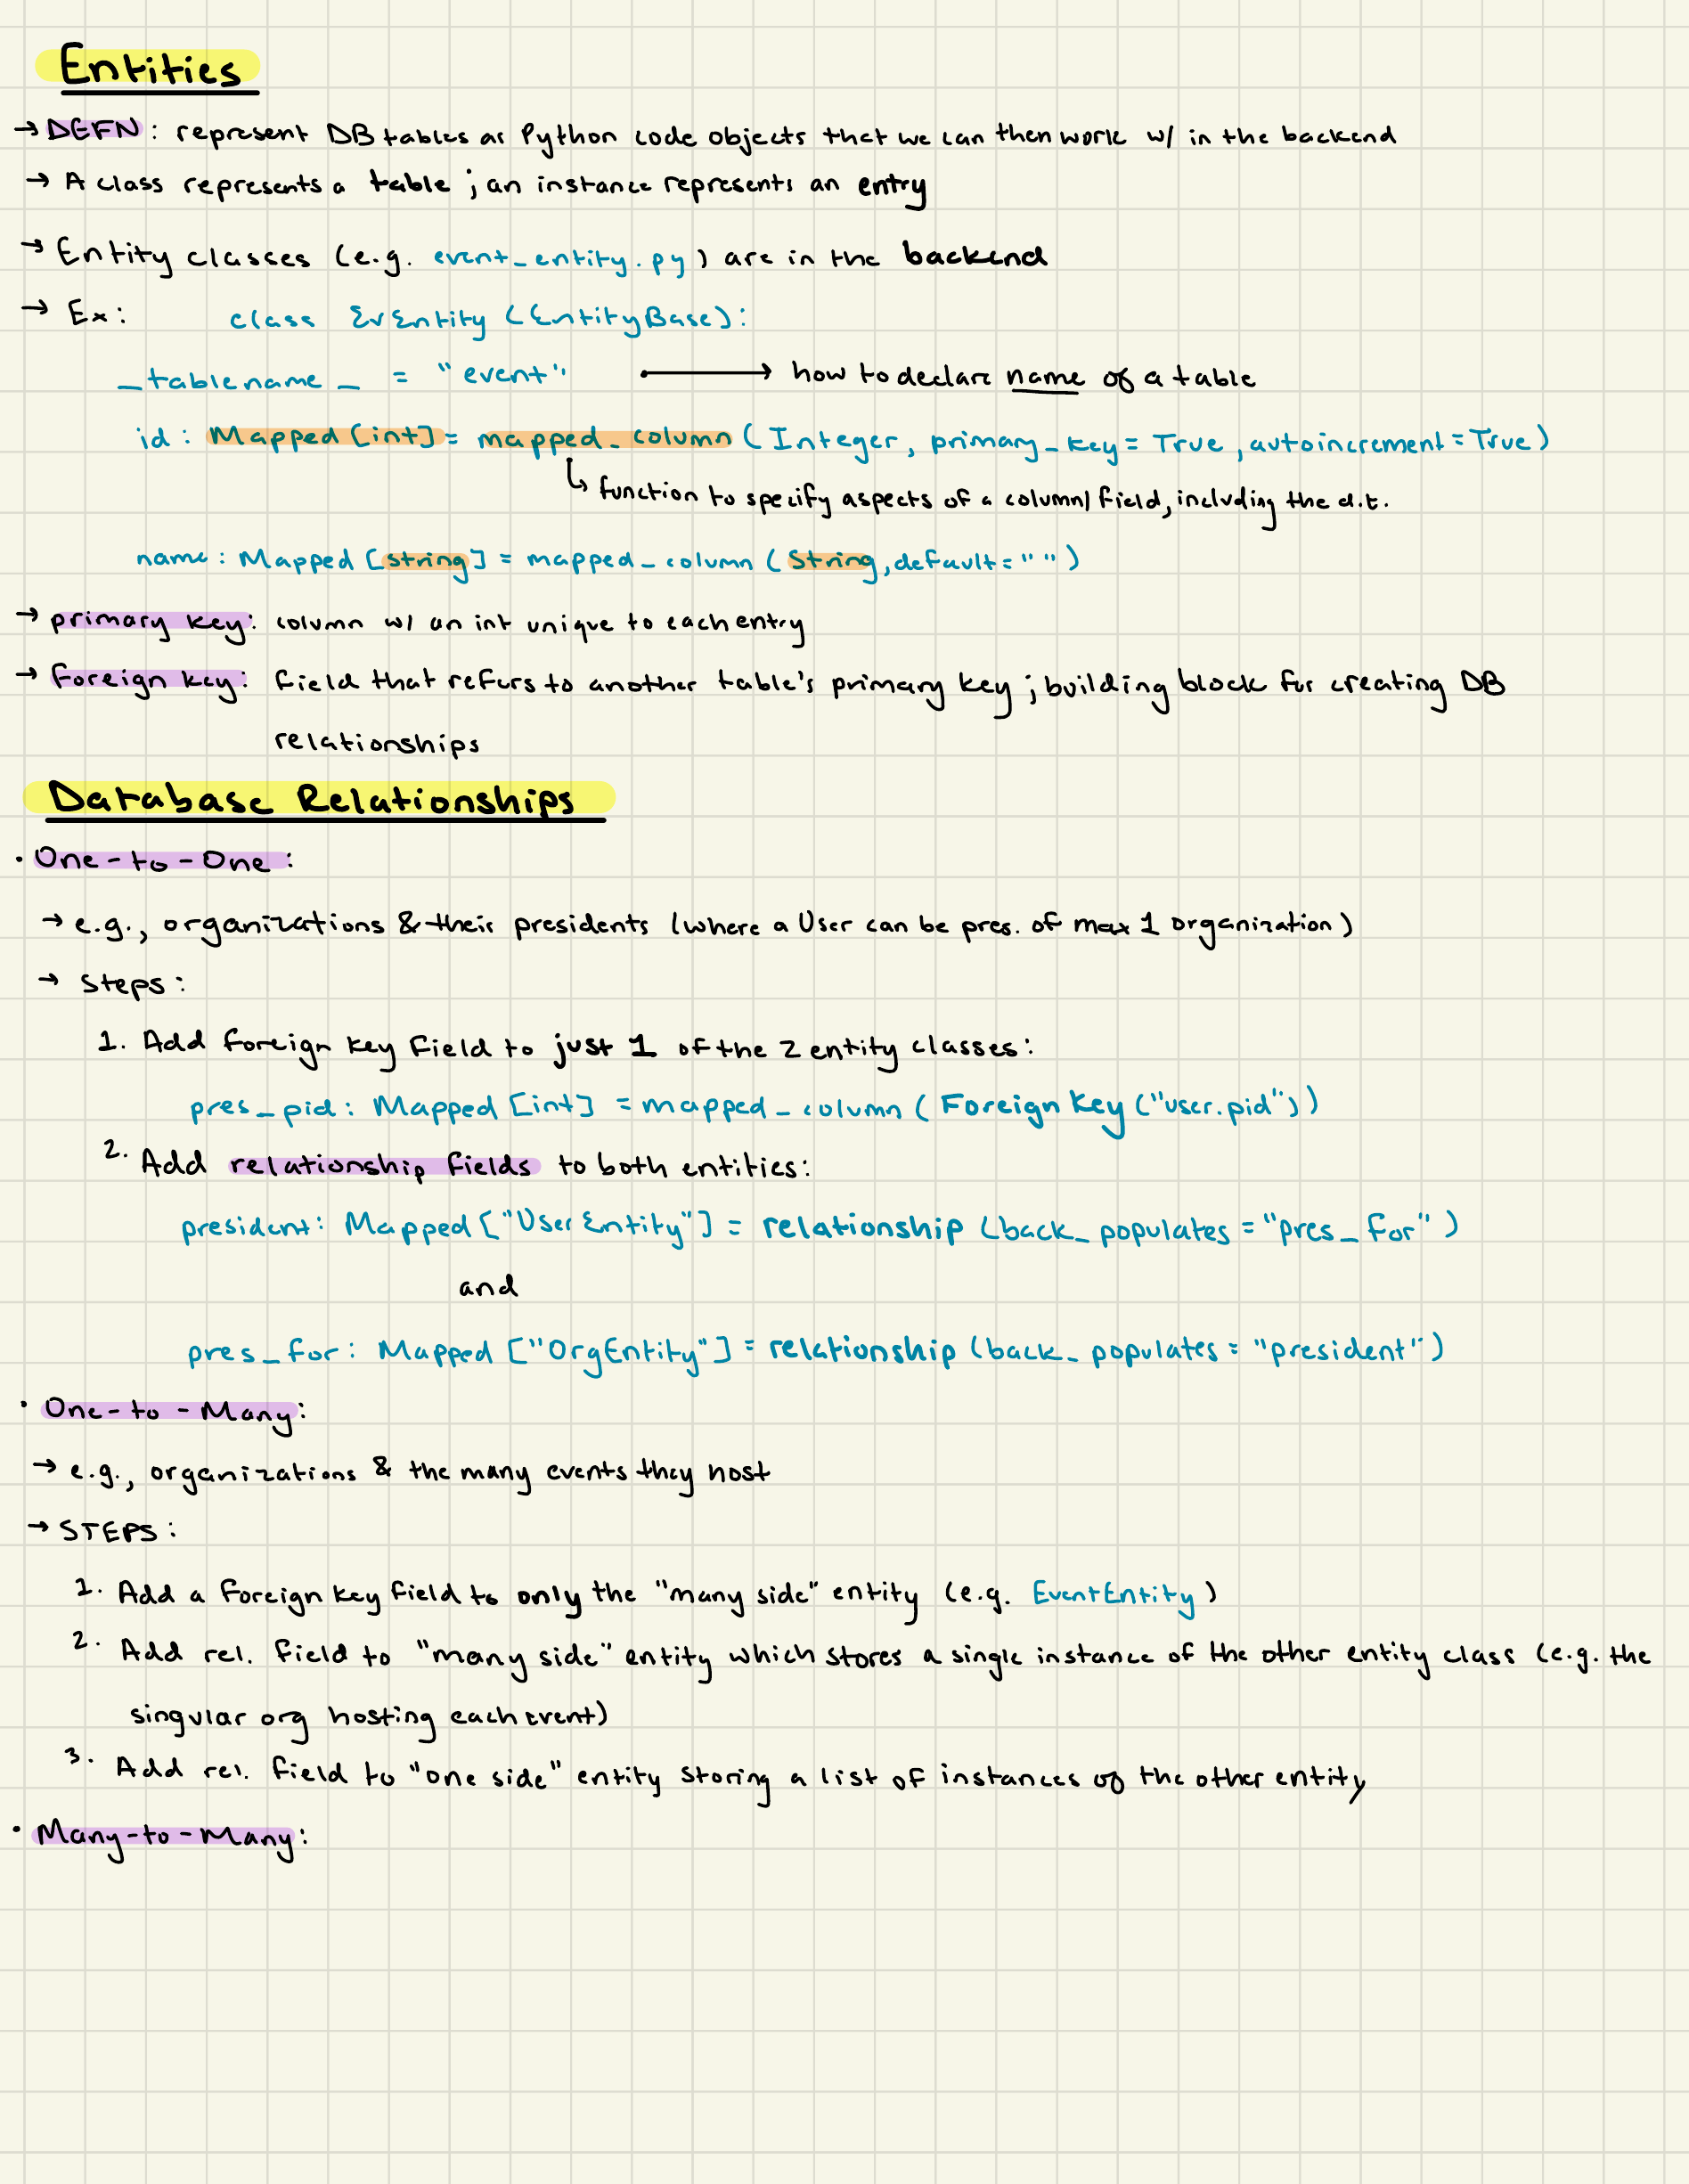 Entities
→ DEFN: represent DB tables as Python code objects that we can then work w/ in the backend
→ A class represents a table; an instance represents an entry
→ Entity classes (e.g. event_entity.py) are in the backend
→ Ex: class EvEntity (EntityBase):
_tablename_ = "event" → how to declare name of a table
id: Mapped [int] = mapped_column (Integer, primary_key = True, autoincrement = True)
↳ function to specify aspects of a column/field, including the d.t.
name: Mapped [string] = mapped_column (String, default = "")
→ primary key: column w/ an int unique to each entry
→ foreign key: field that refers to another table's primary key; building block for creating DB
relationships
Database Relationships
• One-to-One:
→ e.g., organizations & their presidents (where a User can be pres. of max 1 organization)
→ Steps:
1. Add foreign key field to just 1 of the 2 entity classes:
pres_pid: Mapped [int] = mapped_column (Foreign Key ("user.pid"))
2. Add relationship fields to both entities:
president: Mapped ["UserEntity"] = relationship (back_populates = "pres_for")
and
pres_for: Mapped ["OrgEntity"] = relationship (back_populates = "president")
• One-to-Many:
→ e.g., organizations & the many events they host
→ STEPS:
1. Add a foreign key field to only the "many side" entity (e.g. EventEntity)
2. Add rel. field to "many side" entity which stores a single instance of the other entity class (e.g. the
singular org hosting each event)
3. Add rel. field to "one side" entity storing a list of instances of the other entity
• Many-to-Many: